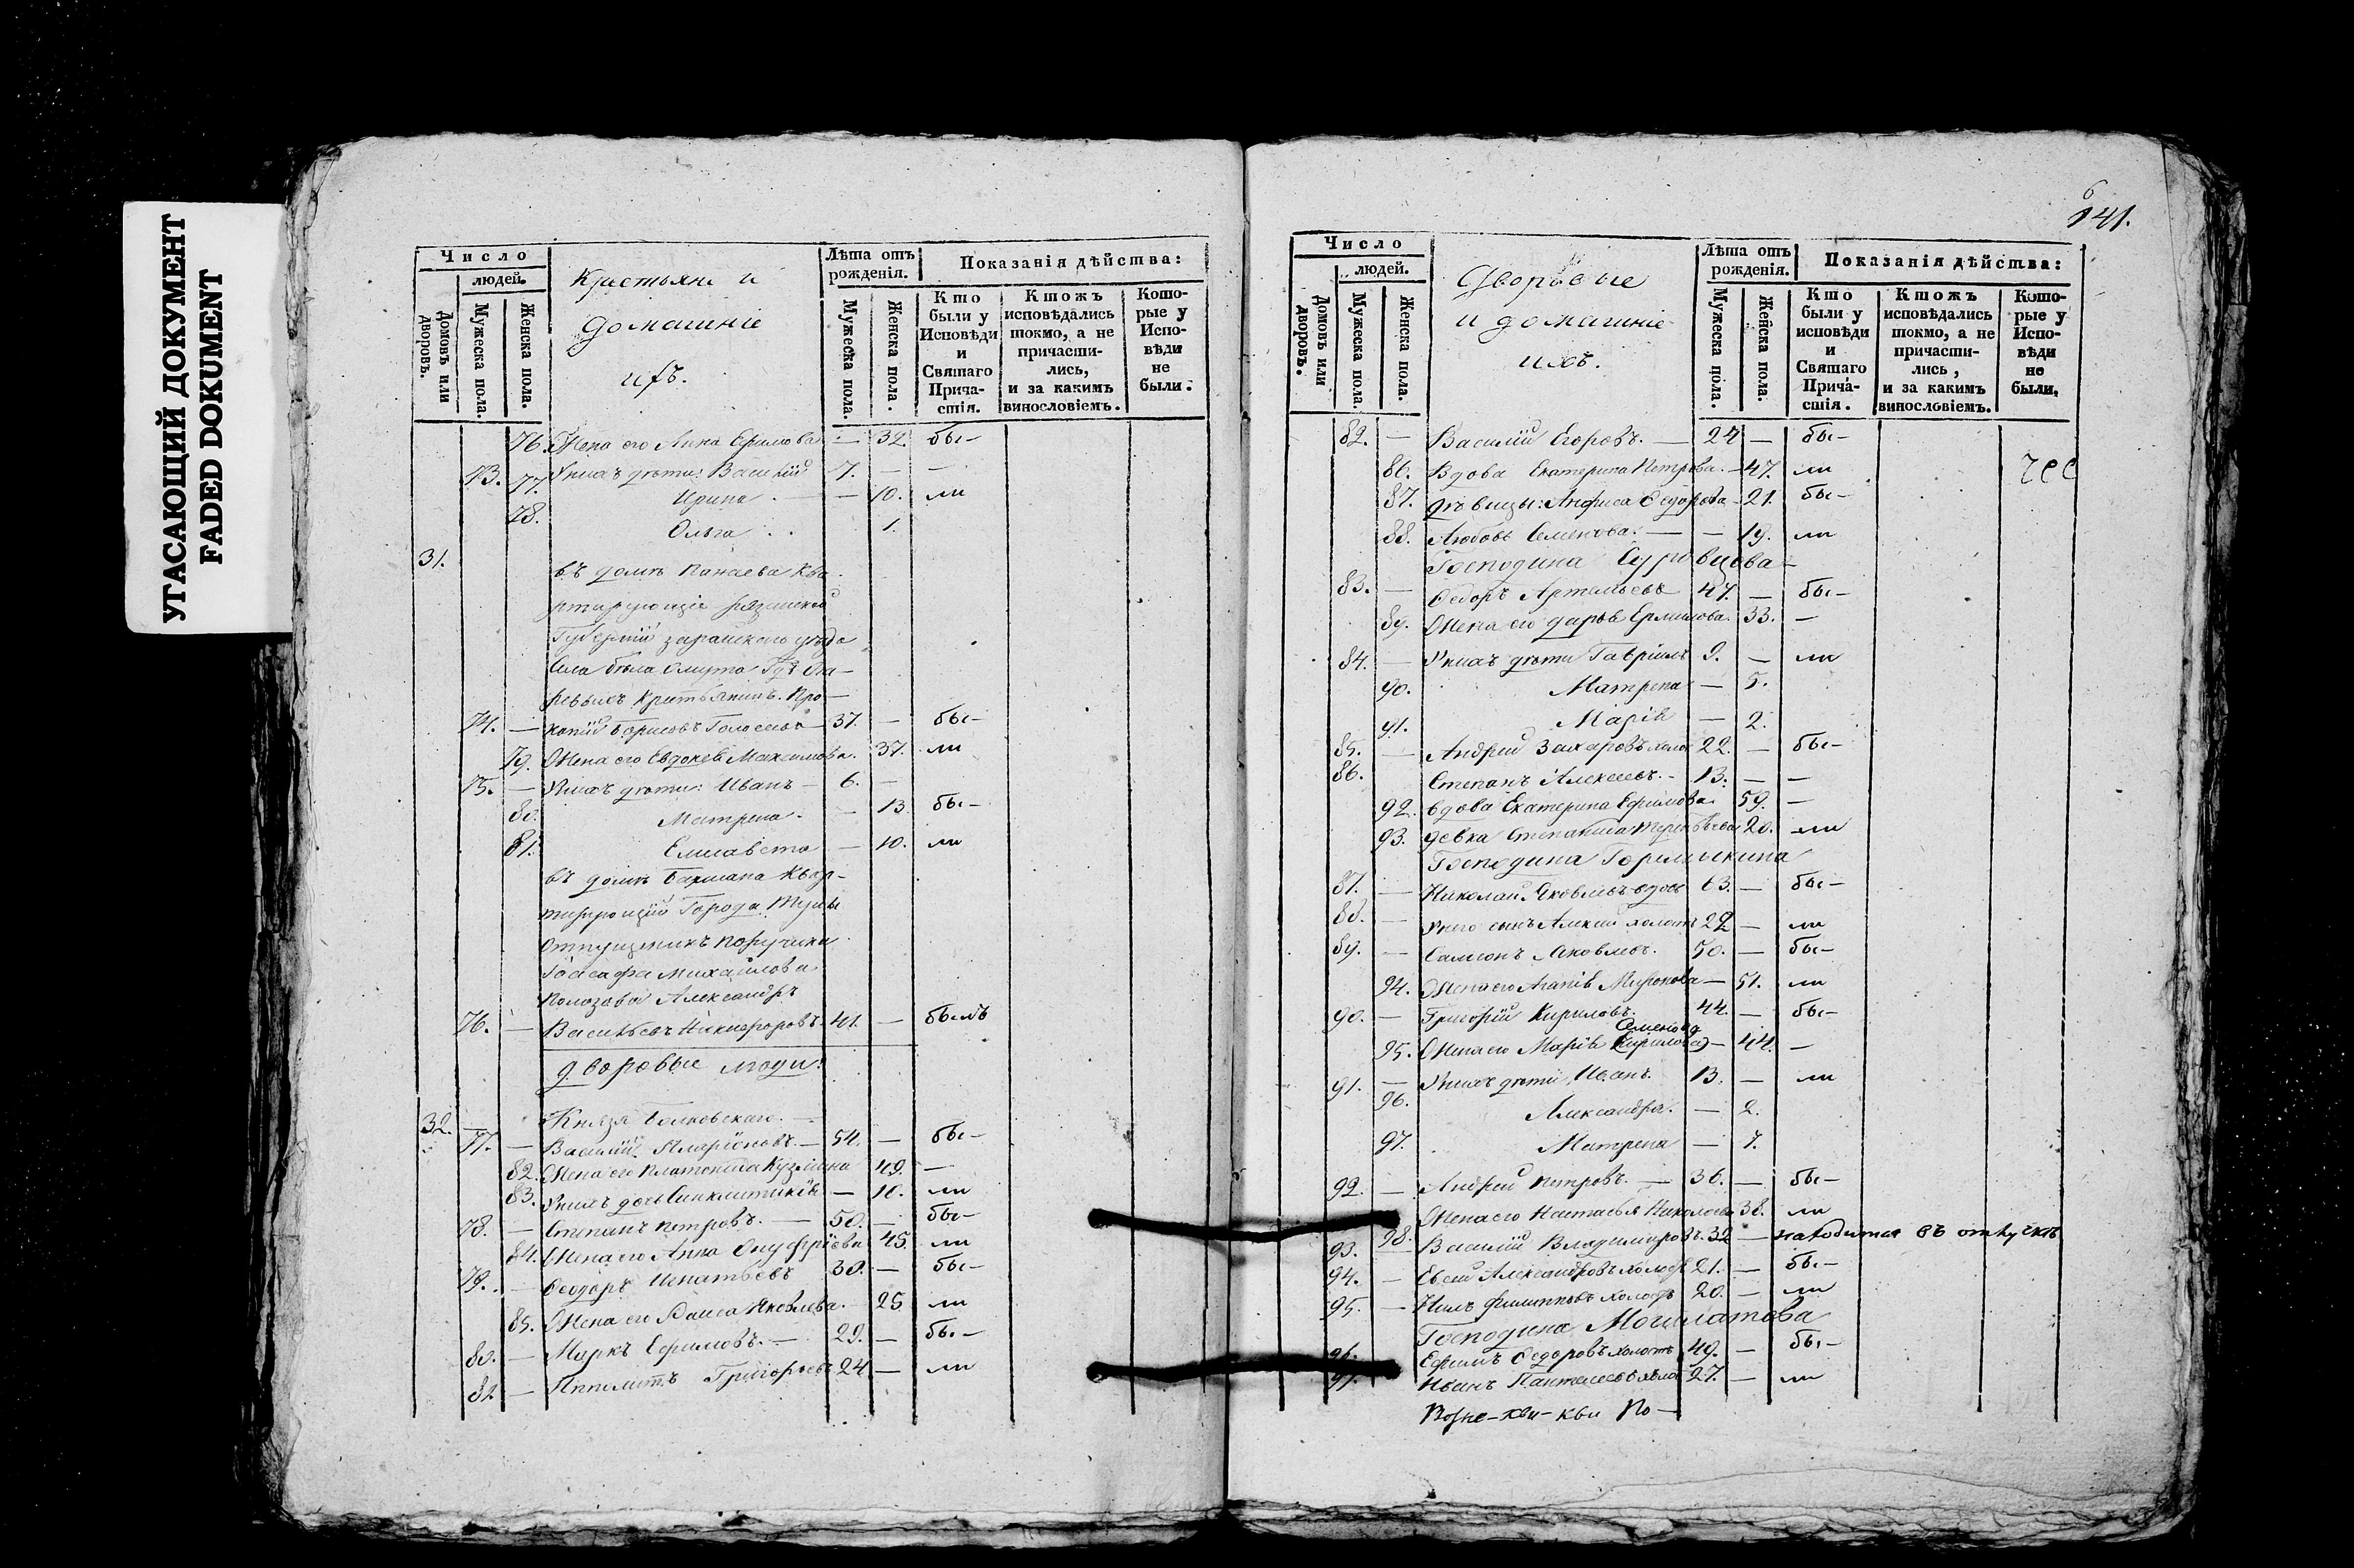 УТАСАЮЩИЙ ДОКУМЕНТ
FADED DOKUMENT
Число
людей.
Домовъ или дворовъ.
Мужеска пола.
Женска пола.
Крестьяне и
домашніе
ихъ.
Лѣта отъ рожденія.
Мужеска пола.
Женска пола.
Показанія дѣйства:
Кто были у Исповѣди и Святаго Причастія.
Ктожъ исповѣдались токмо, а не причастились, и за какимъ винословіемъ.
Которые у Исповѣди не были.
76. Жена его Анна Ефимова — 32. бы—
73. У нихъ дѣти: Василій 7. — —
77. Ирина — 10. ли
78. Ольга 1.
31. въ домѣ Панаева ква-
ртирующіе Рязанской
Губерніи зарайскаго уѣзда
Села бѣла Омута
Крестьянинъ. Про—
74. — копій Борисовъ 37. — бы—
79. Жена его Евдокея Максимова. 37. ли
75. — У нихъ дѣти: Иванъ — 6. —
80. Матрена. — 13 бы—
81. Елисавета — 10. ли
въ домѣ квар-
тирующій Города Тулы
Отпущеникъ поручика
Іоасафа Михайлова
Александръ
76. — Васильевъ Никифоровъ. 41. — былъ
дворовые люди:
32. — Князя
77. — Василій Иларіоновъ. — 54. — бы—
82. Жена его Платонида Кузмина 49. —
83. У нихъ дочь Синклитикія — 10. ли
78. — Степанъ Петровъ. — 50. — бы—
84. Жена его Анна Онуфріева 45. ли
79. — Феодоръ Игнатьевъ 30. — бы—
85. Жена его Раиса Яковлева. — 25 ли
80. — Маркъ Ефимовъ. — 29. — бы—
81 — Ипполитъ Григорьевъ 24 — ли
141.
Число
людей.
Домовъ или дворовъ.
Мужеска пола.
Женска пола.
Дворовые
и домашніе
ихъ.
Лѣта отъ рожденія.
Мужеска пола.
Женска пола.
Показанія дѣйства:
Кто были у исповѣди и Святаго Причастія.
Ктожъ исповѣдались токмо, а не причастились, и за какимъ винословіемъ.
Которые у Исповѣди не были.
82. — Василій Егоровъ. — 24 — бы—
86. Вдова Екатерина Петрова. — 47. ли
87. дѣвицы: Анфиса Федорова — 21. бы—
88. Любовь Семенова. — — 19. ли
Господина Суровцова
83. — Федоръ Артемьевъ 47. — бы—
89. Жена его дарья Ермилова. 33. —
84. — У нихъ дѣти Гавріилъ 9. — ли
90. Матрена — 5.
91. Марія — 2.
85. — Андрей Захаровъ холос 22. — бы—
86. Степанъ Алексеевъ. — 13. — —
92. вдова Екатерина Ефимова. 59. —
93. девка Степанида 20. ли
Господина Горемыкина
87. — Николай Яковлевъ вдовъ 63. — бы—
88. — У него сынъ Алексей холостъ 22 — ли
89. — Самсонъ Яковлевъ. 50. — бы—
94. Жена его Агапія Миронова — 51. ли
90. — Григорій Кириловъ. 44. — бы—
Семенова
95. Жена его Марія Кирилова — 44. —
91. — У нихъ дѣти, Иванъ. 13. — ли
96. Александра. — 2.
97. Матрена — 7.
92. — Андрей Петровъ. — 36. — бы—
98. Жена его Настасья Николаева 38. ли
93. — Василій Владимировъ. 32 — находится въ отпускѣ
94. — Евсей Александровъ холост 21. — бы—
95. — Нилъ Филипповъ холостъ 20. — ли
Господина
96. Ефимъ Федоровъ холостъ 49. — бы—
97. Иванъ Пантелеевъ 27. — ли